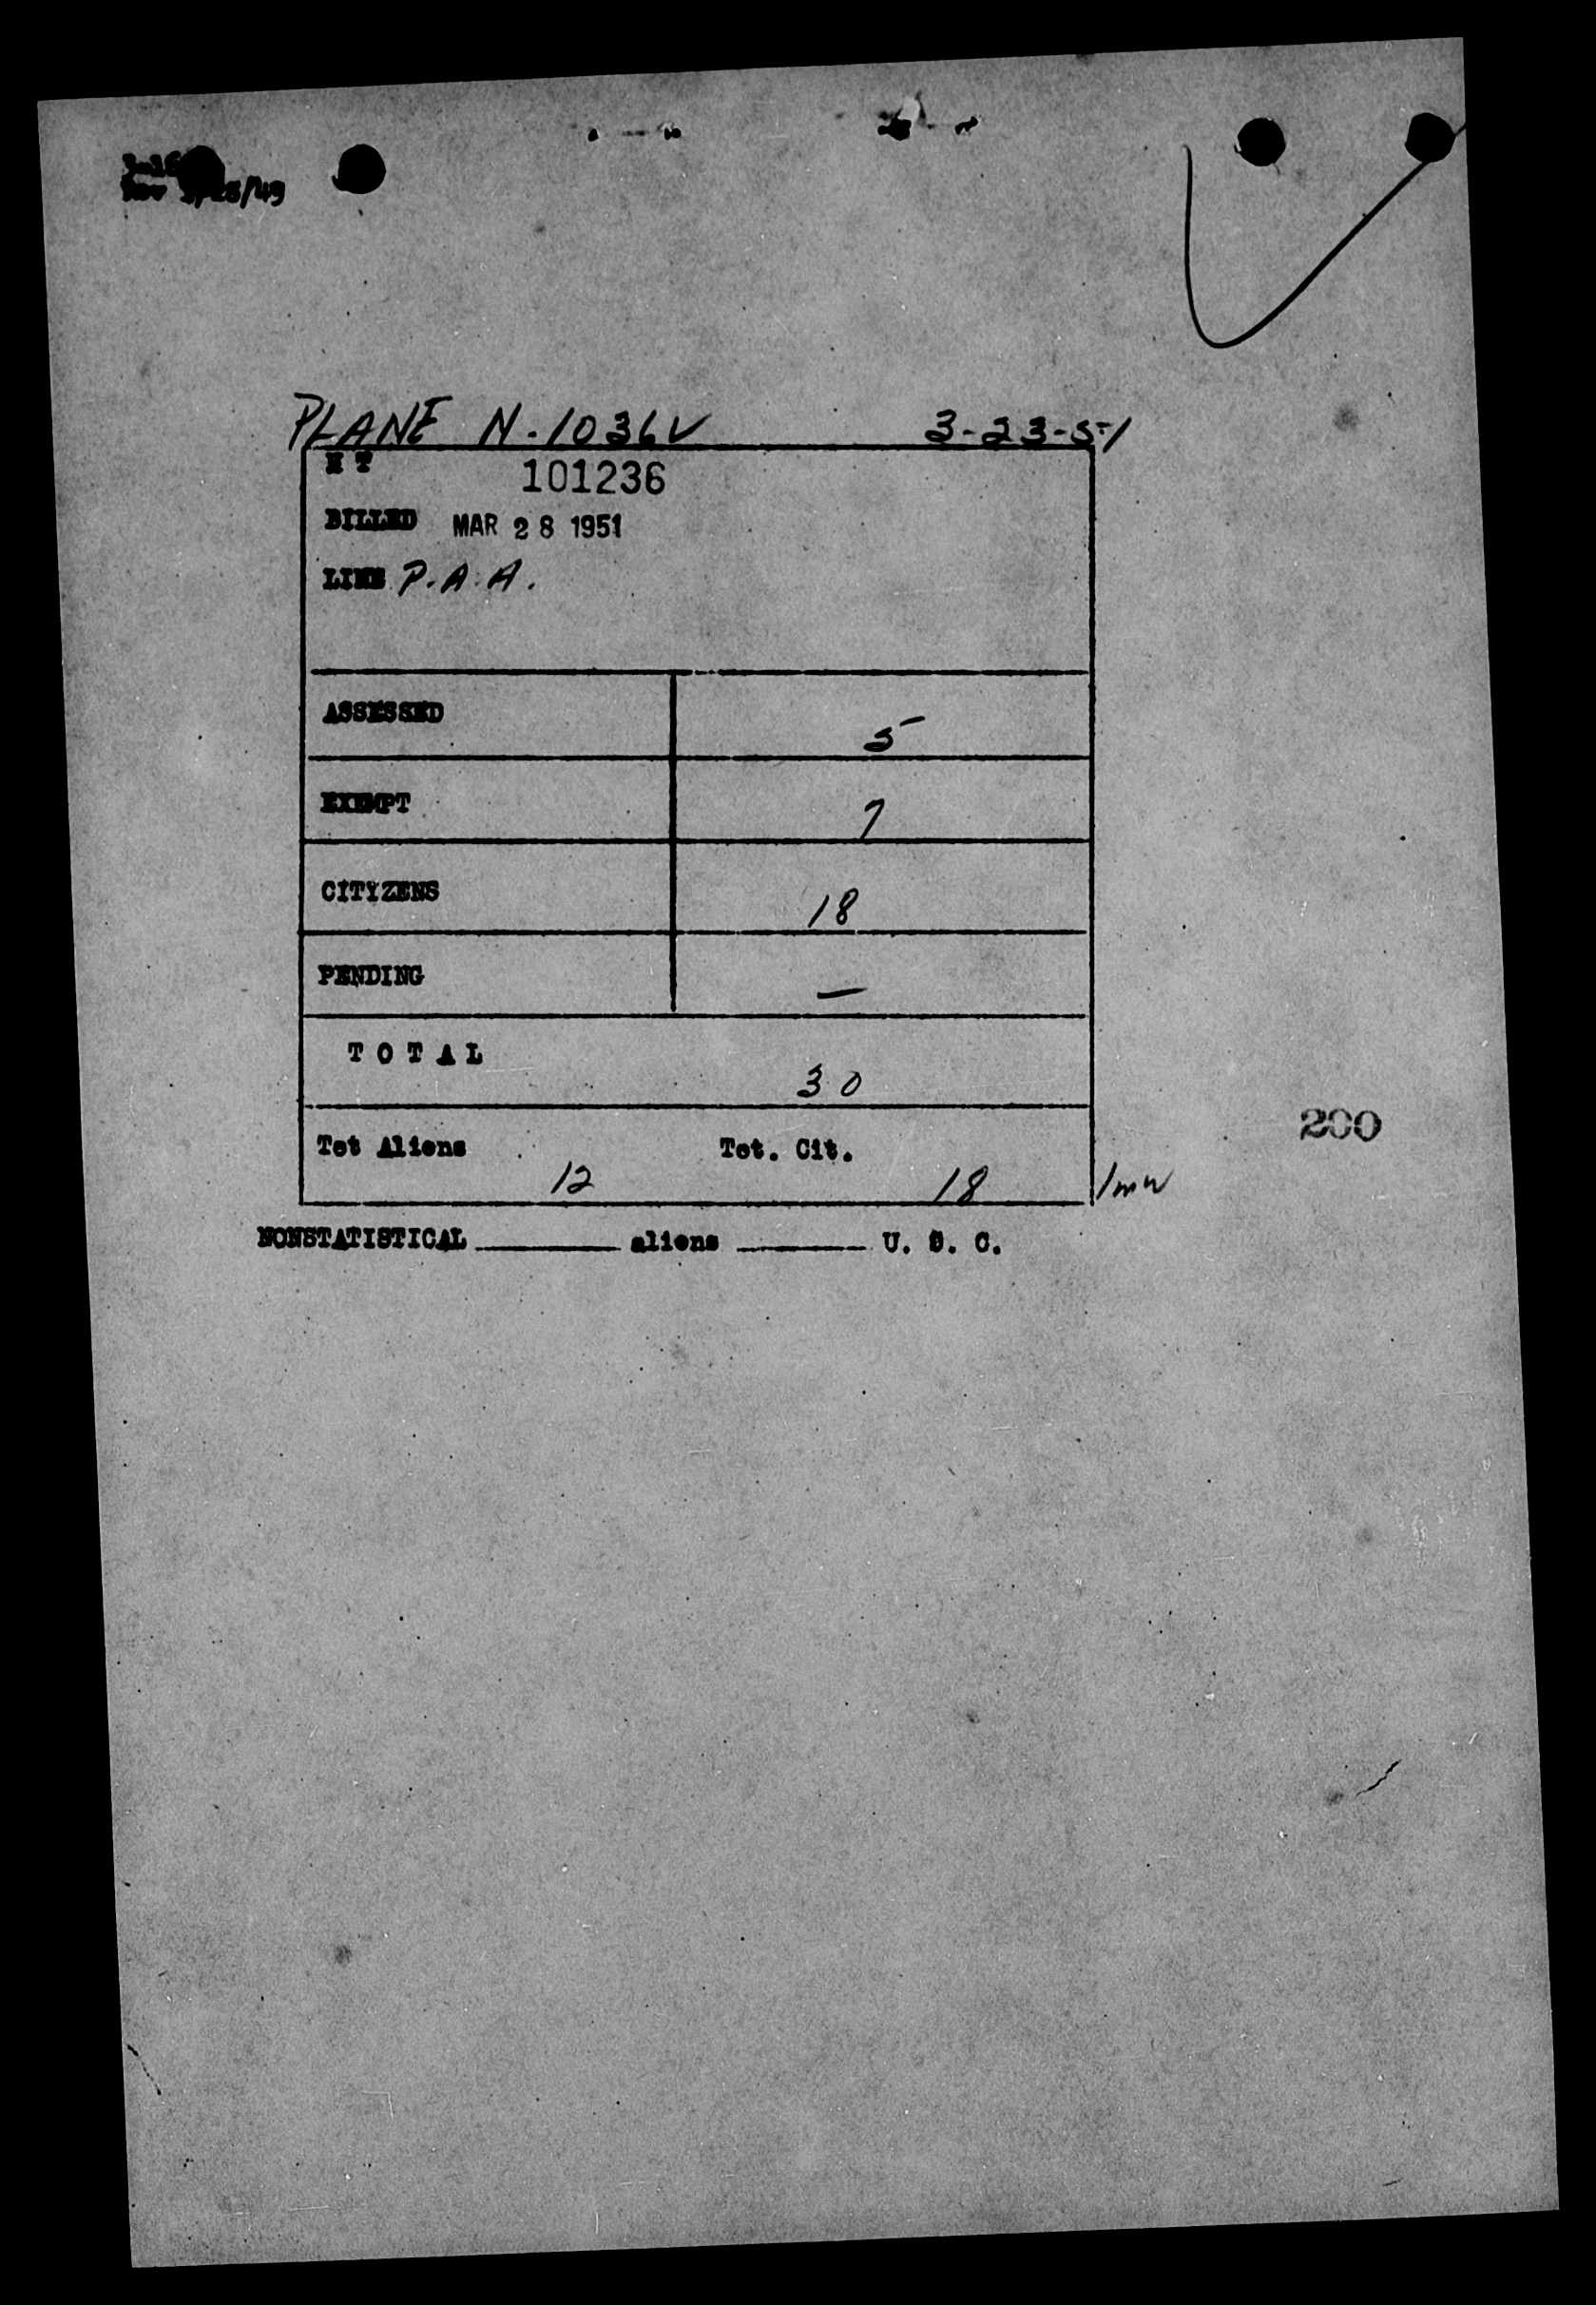 /49
PLANE N-1036V 3-23-51
H T 101236
BILLED MAR 28 1951
LINE P.A.A.
ASSESSED 5
EXEMPT 7
CITIZENS 18
PENDING —
TOTAL 30
200
Tot Aliens 12 Tot. Cit. 18
NONSTATISTICAL ________ aliens ________ U. S. C.